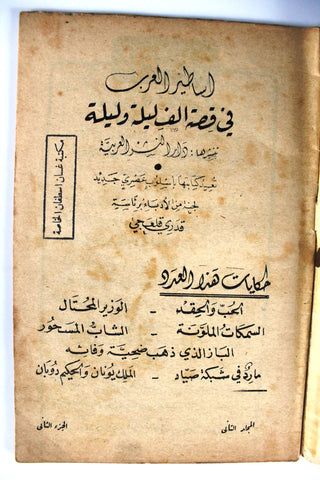 اساطير العرب
في قصة الف ليلة وليلة
تنشرها : دار النشر العربية
تعيد كتابتها باسلوب عصري جديد
لجنة من الأدباء برئاسة
قدري قلعجي
مكتبة غسان اسطفان الخاصة
حكايات هذا العدد
الحبّ والحِقد - الوزير المحتال
السمكات الملوّنة - الشاب المسحور
الباز الذي ذهب ضحيّة وفائه
ماردٌ في شبكة صيّاد - الملك يونان والحكيم دوبان
المجلد الثاني
الجزء الثاني